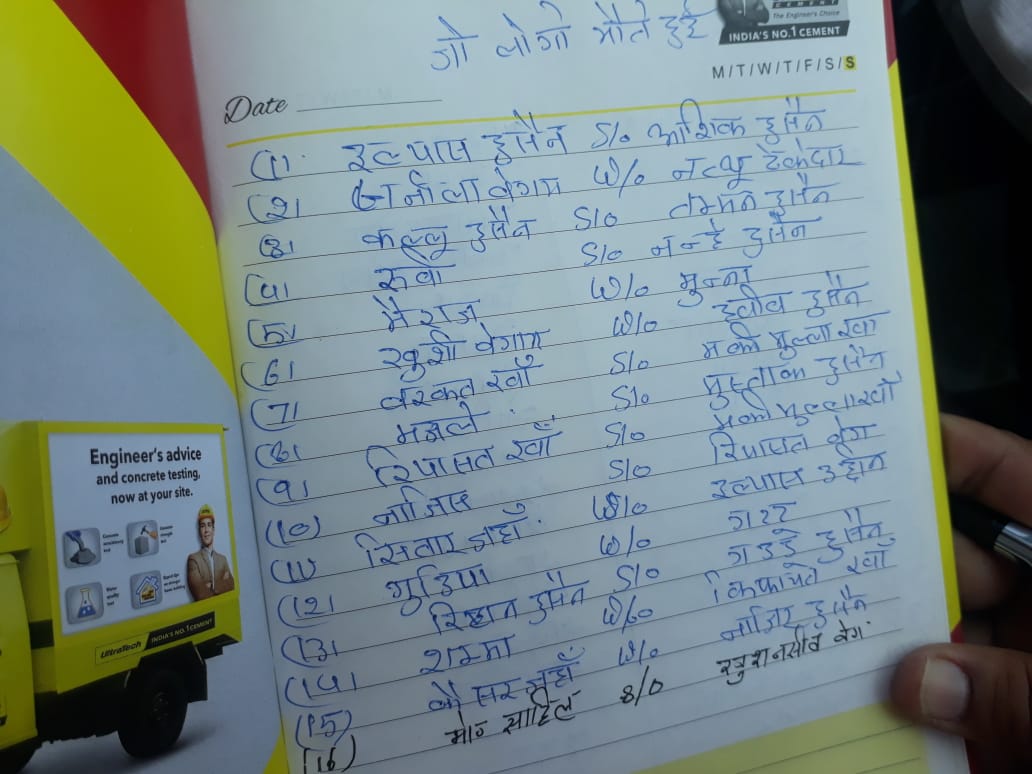 CEMENT
The Engineer's Choice
INDIA'S NO.1 CEMENT
जो लोगो मौते हुई
M/T/W/T/F/S/S
Date
(1। इल्यास हुसैन S/o आशिक हुसैन
(2। अनीला बेगम W/o नत्थू ठेकेदार
(3। कल्लू हुसैन S/o हुसैन
(4। रूबी S/o नन्हे हुसैन
(5। मैराज W/o मुन्ना
(6। खुशी बेगम W/o हबीब हुसैन
(7। बरकत खाँ S/o मकी मुल्ला खां
(8। मंजले S/o मुस्ताक हुसैन
(9। रियासत खाँ S/o मकी मुल्लाखाँ
(10) नाजिम S/o रियासत बेग
(11) सितार जहाँ W/o इल्यास उद्दीन
(12। गुडिया W/o
(13। रिहान हुसैन S/o गडडे हुसैन
(14। शम्मा W/o किफायत खाँ
(15) कौसर जहाँ W/o नाजिर हुसैन
(16) मो० साहिल S/O खुशनसीब बेग
Engineer's advice
and concrete testing,
now at your site.
UltraTech INDIA'S NO.1 CEMENT